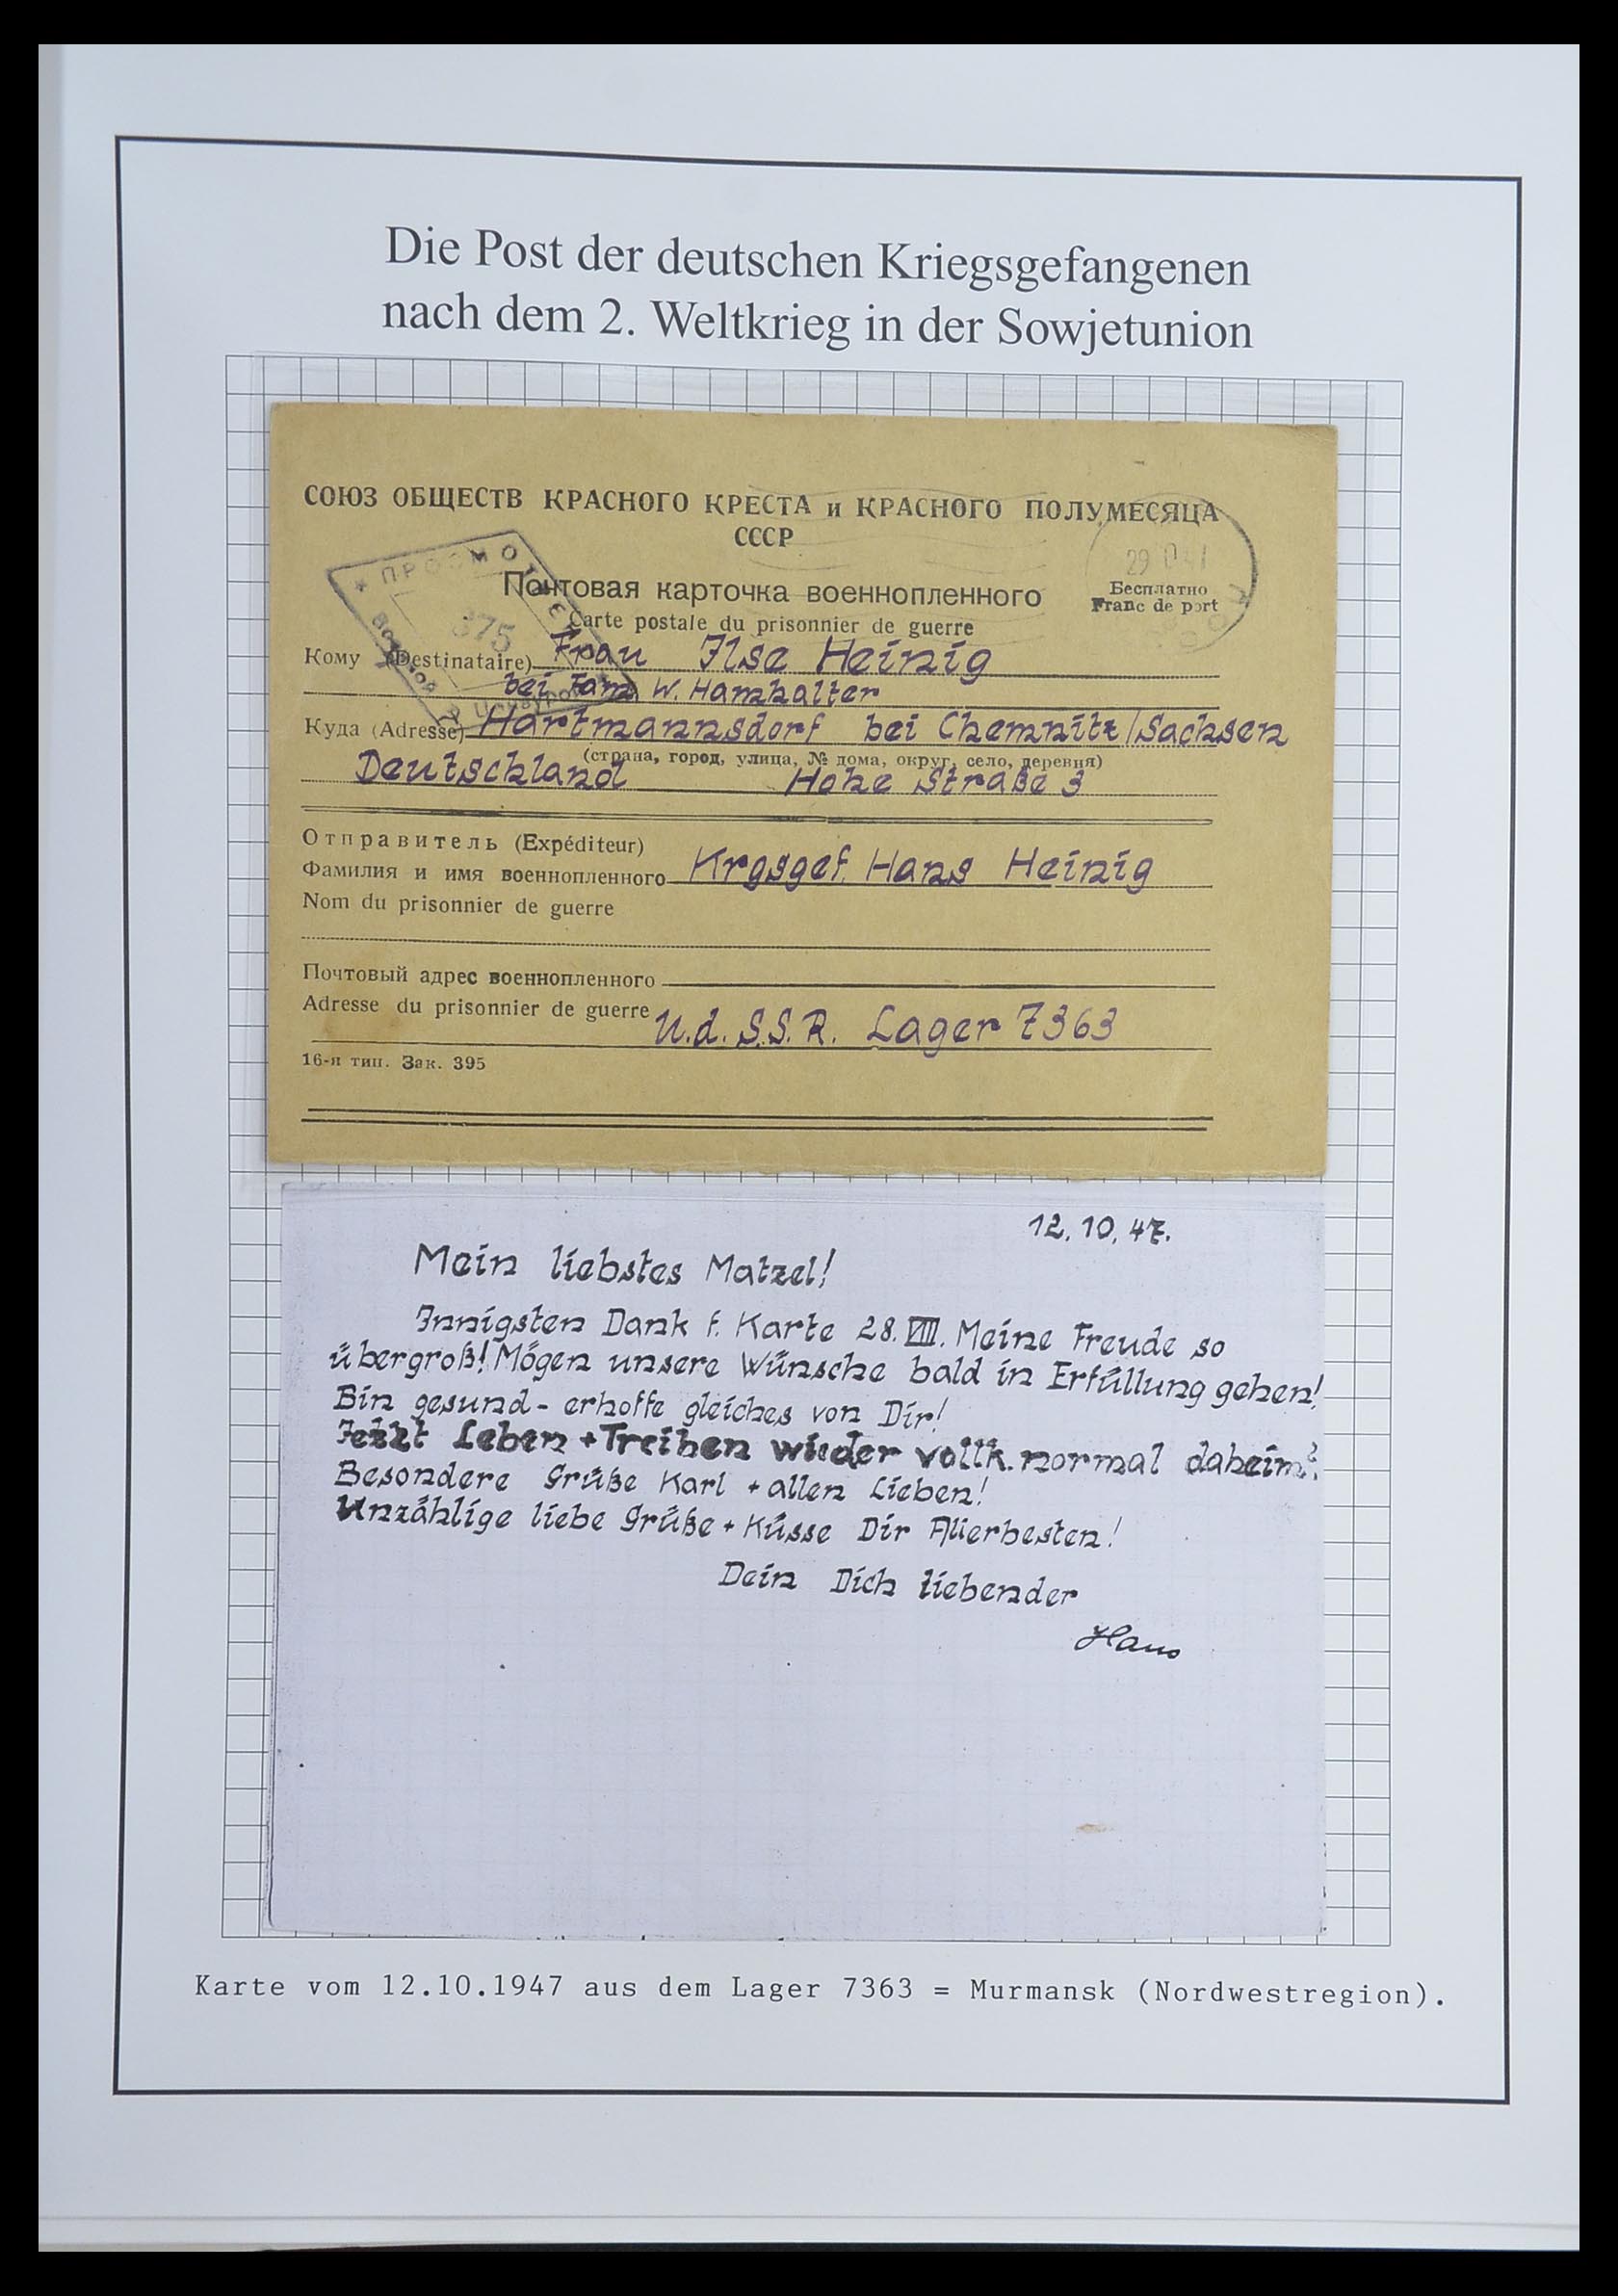 Die Post der deutschen Kriegsgefangenen
nach dem 2. Weltkrieg in der Sowjetunion
СОЮЗ ОБЩЕСТВ КРАСНОГО КРЕСТА и КРАСНОГО ПОЛУМЕСЯЦА
СССР
Почтовая карточка военнопленного
Carte postale du prisonnier de guerre
Бесплатно
Franc de port
375
Кому (Destinataire) Frau Ilse Heinig
bei Fam. W. Hamhalter
Куда (Adresse) Hartmannsdorf bei Chemnitz/Sachsen
(страна, город, улица, № дома, округ, село, деревня)
Deutschland Hohe Straße 3
Отправитель (Expéditeur)
Фамилия и имя военнопленного Krgsgef. Hans Heinig
Nom du prisonnier de guerre
Почтовый адрес военнопленного
Adresse du prisonnier de guerre U.d.S.S.R. Lager 7363
16-я тип. Зак. 395
12.10.47.
Mein liebstes Matzel!
Innigsten Dank f. Karte 28.VIII. Meine Freude so
übergroß! Mögen unsere Wünsche bald in Erfüllung gehen!
Bin gesund - erhoffe gleiches von Dir!
Jetzt Leben + Treiben wieder vollk. normal daheim?
Besondere Grüße Karl + allen Lieben!
Unzählige liebe Grüße + Küsse Dir Allerbesten!
Dein Dich liebender
Hans
Karte vom 12.10.1947 aus dem Lager 7363 = Murmansk (Nordwestregion).